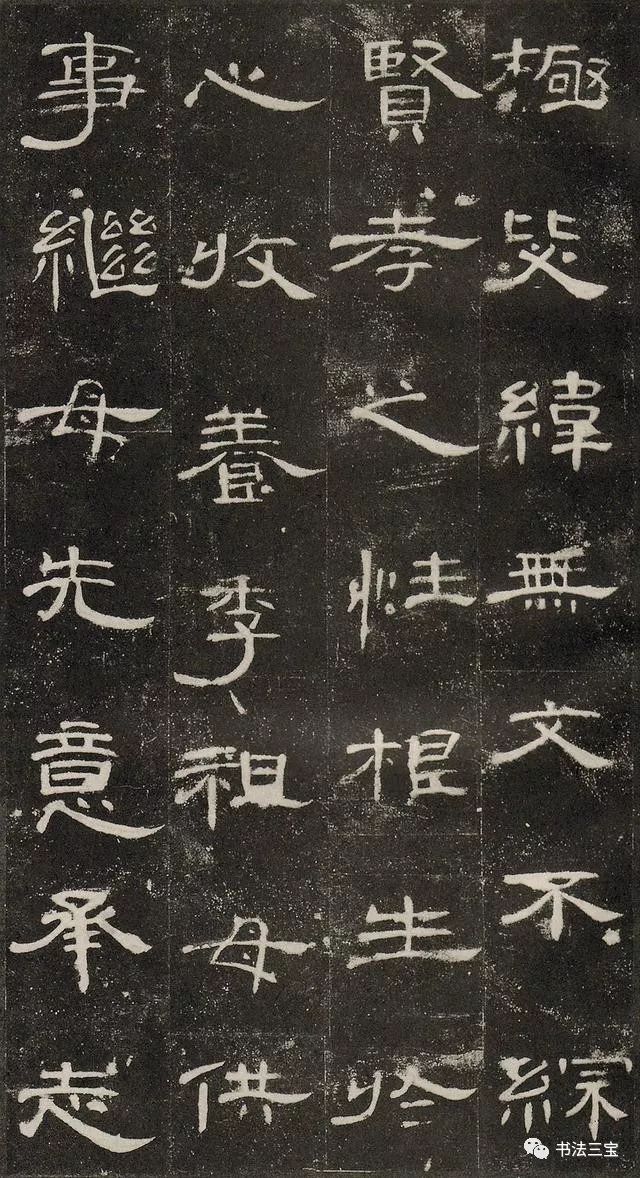 極毖緯無文不綜
賢孝之性根生於
心收養季祖母供
事繼母先意承志
书法三宝